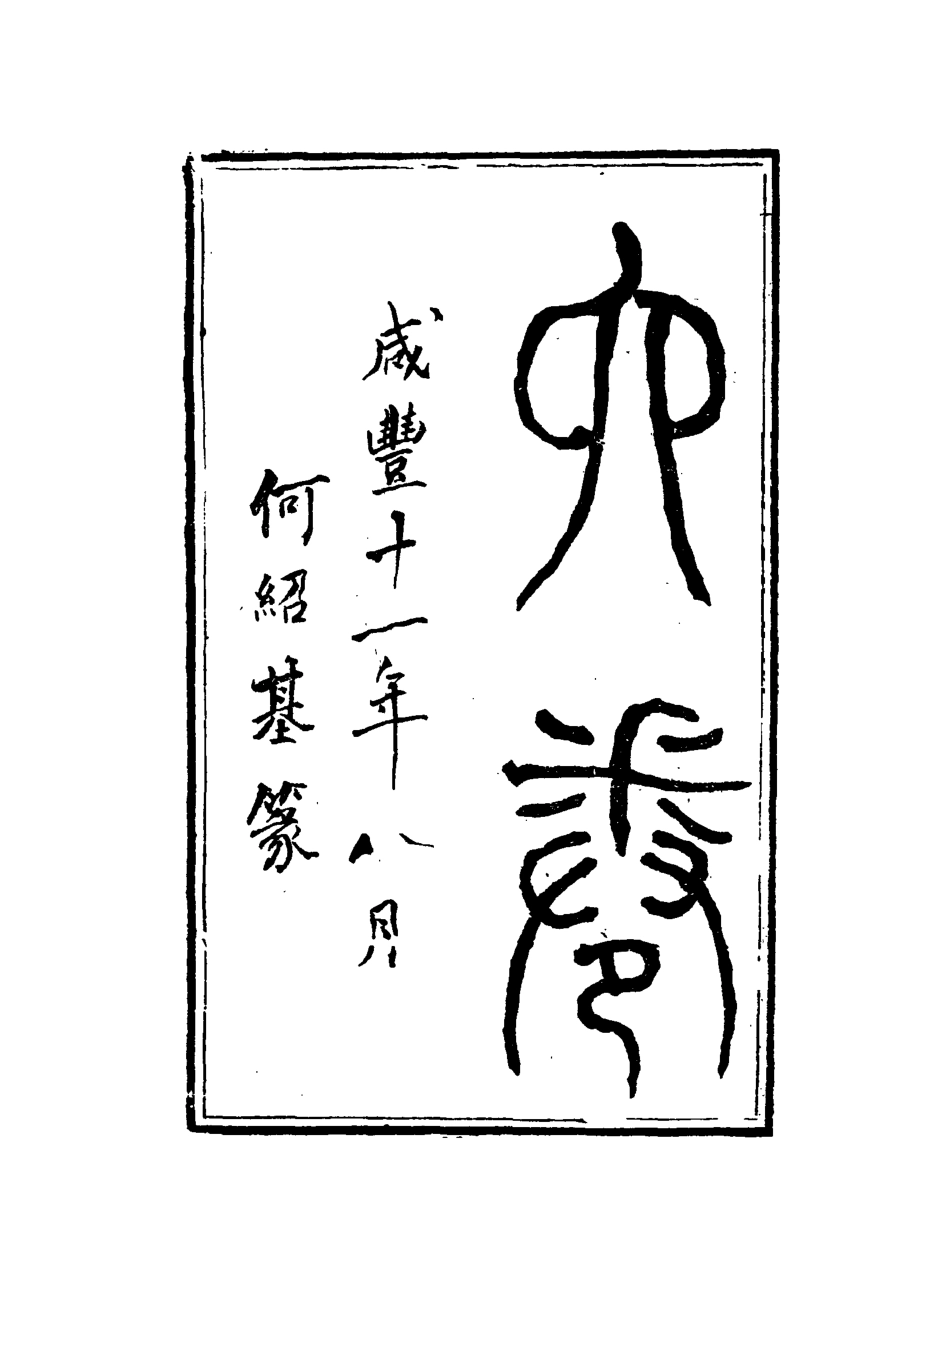 六卷
咸豐十一年八月
何紹基篆